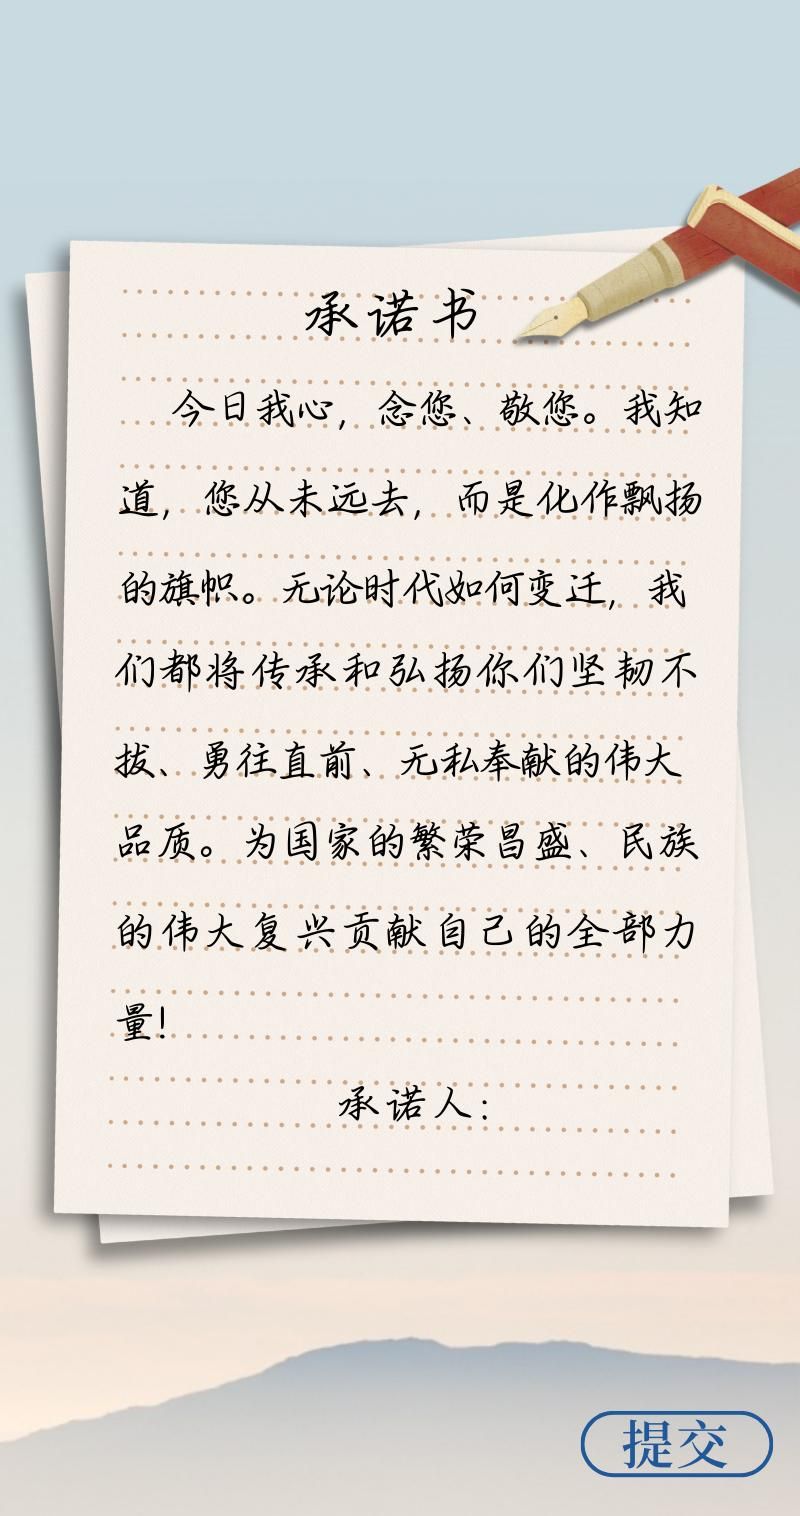 承诺书
今日我心，念您、敬您。我知
道，您从未远去，而是化作飘扬
的旗帜。无论时代如何变迁，我
们都将传承和弘扬你们坚韧不
拔、勇往直前、无私奉献的伟大
品质。为国家的繁荣昌盛、民族
的伟大复兴贡献自己的全部力
量！
承诺人：
提交